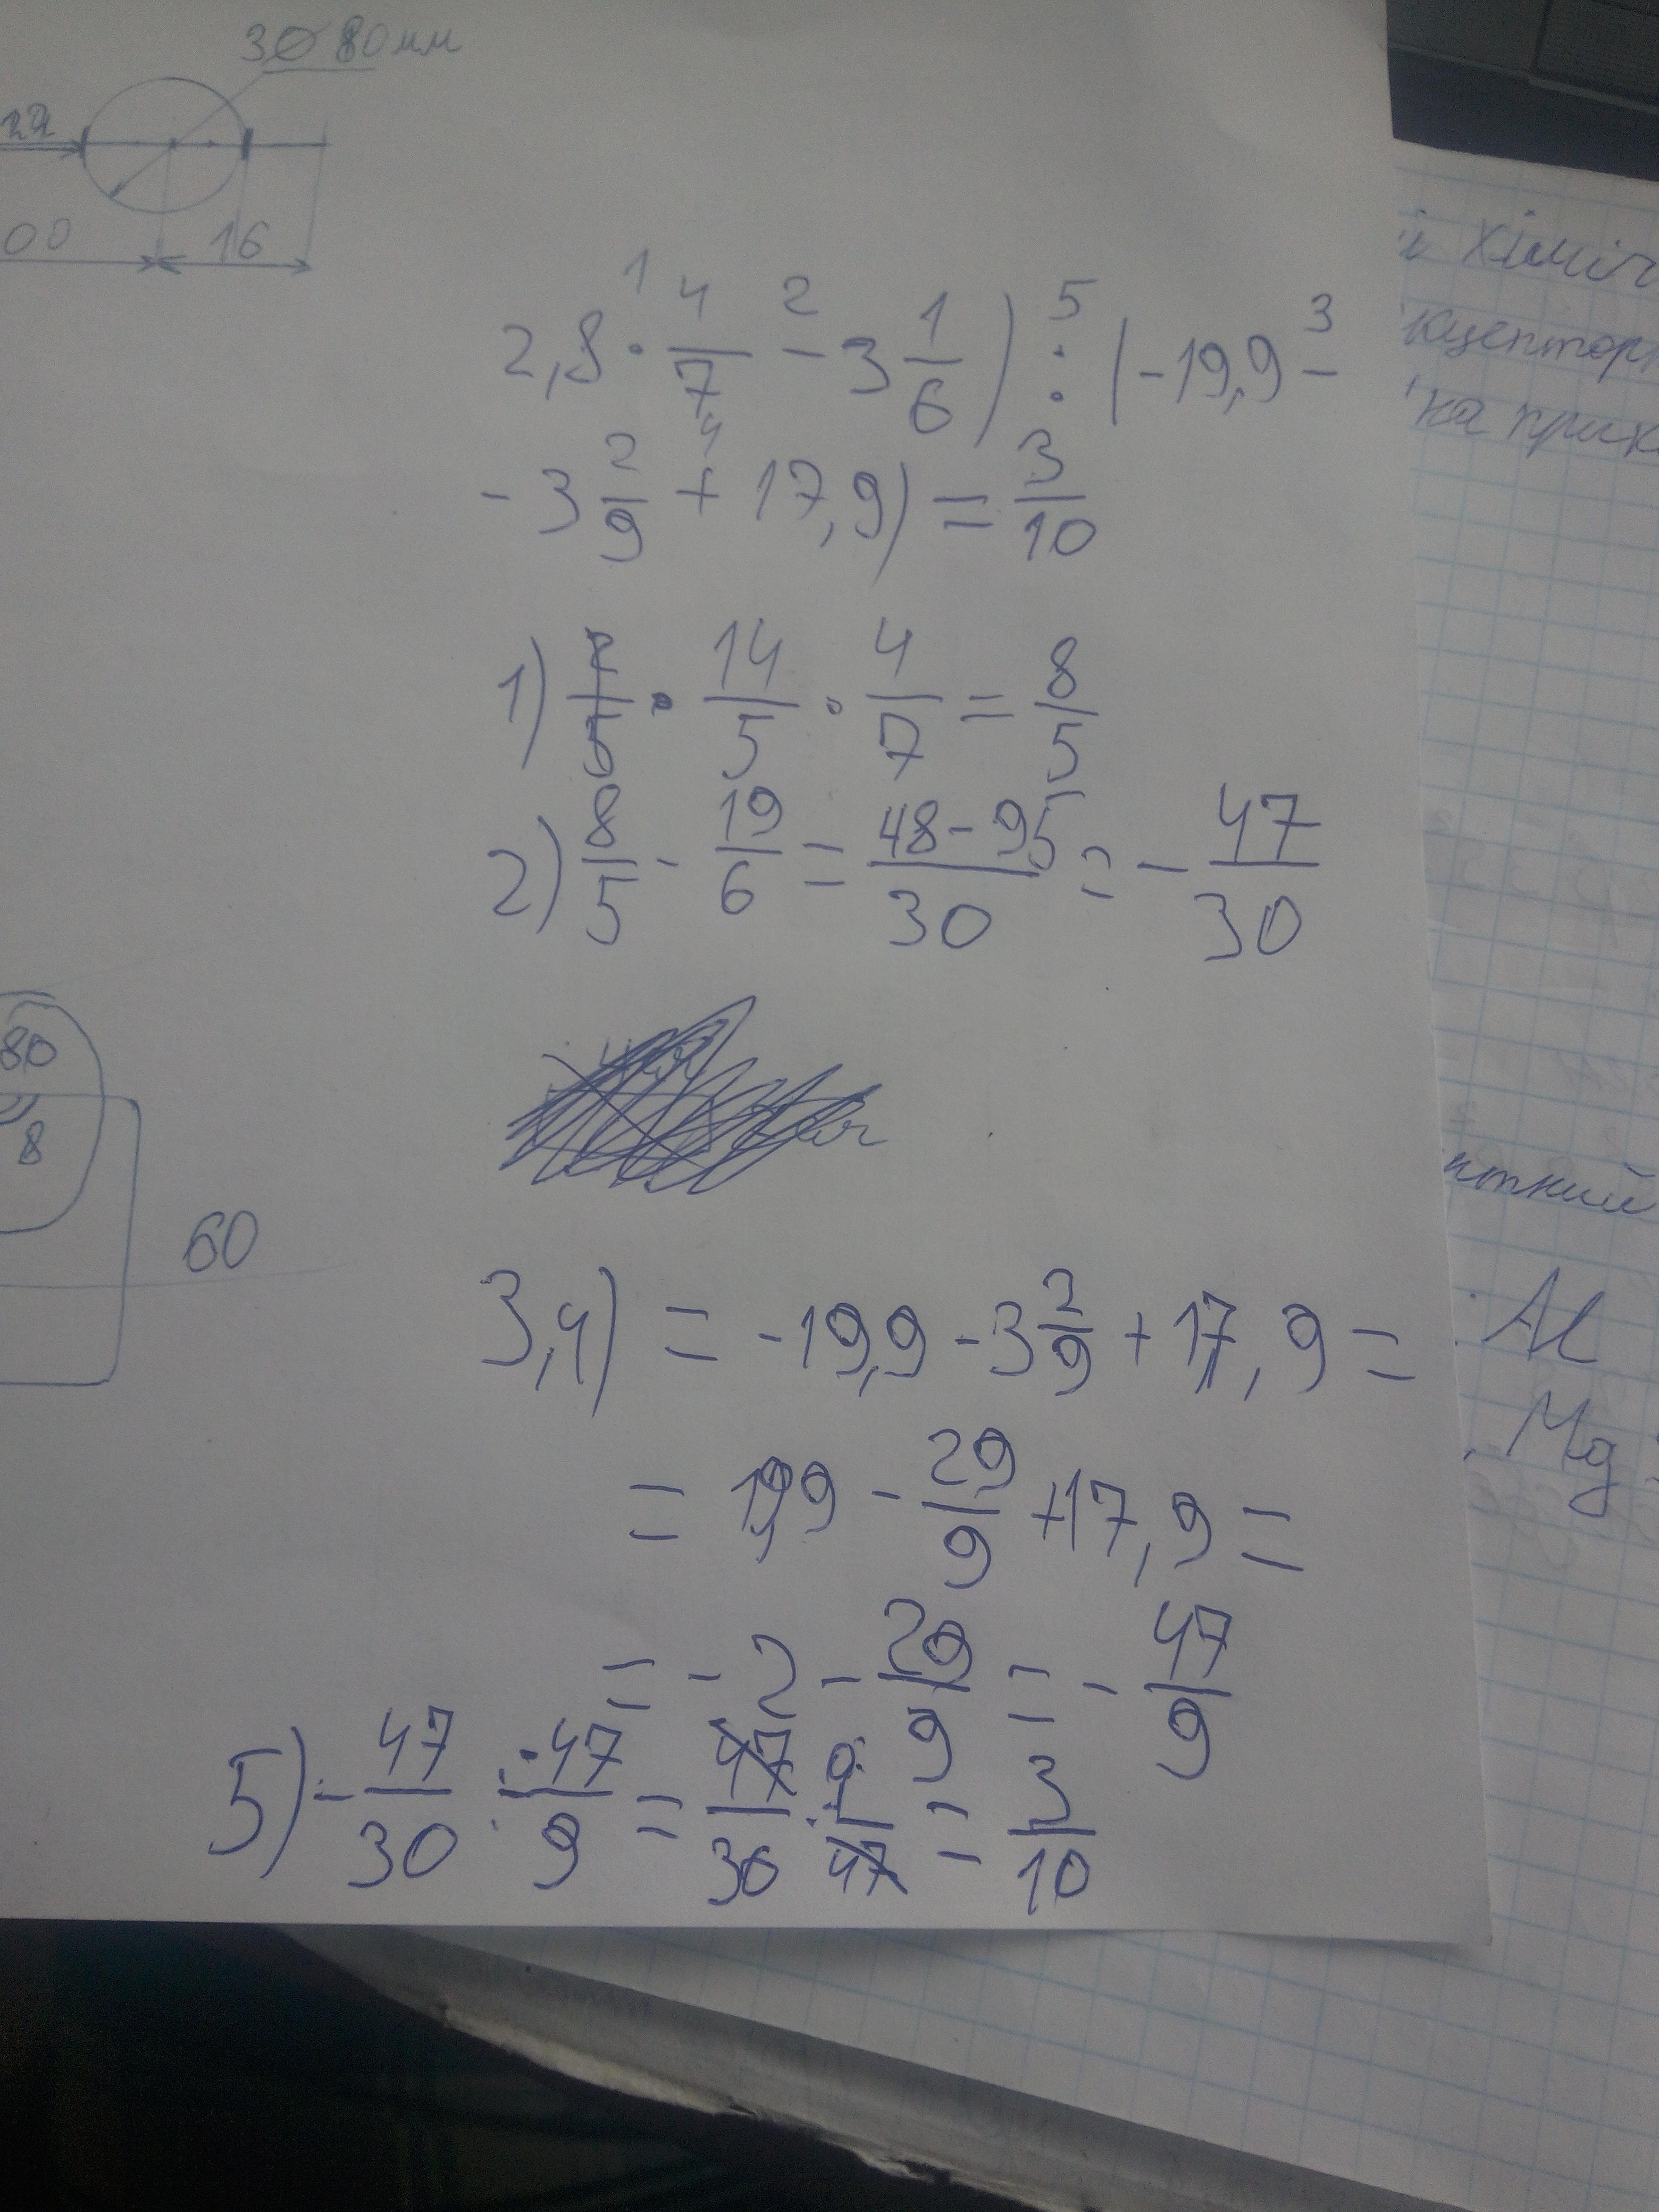 3⌀ 80мм
22
00 16
1 4 2 1 5 3
2,8 · 4/7 - 3 1/6) : (-19,9 -
- 3 2/9 + 17,9) = 3/10
1) 14/5 · 4/7 = 8/5
2) 8/5 - 19/6 = 48-95/30 = - 47/30
80
8
60
3,4) = -19,9 - 3 2/9 + 17,9 =
= 19,9 - 29/9 + 17,9 =
= -2 - 29/9 = - 47/9
5) - 47/30 : -47/9 = 47/30 · 9/47 = 3/10
і хіміч
кцептор
на прик
тний
Al
Mg